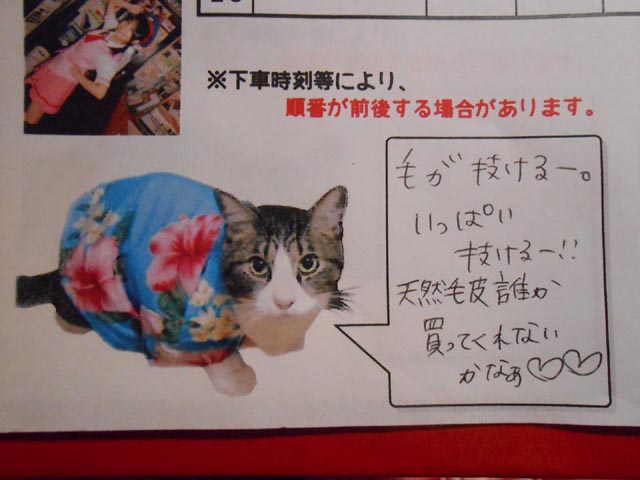 ※下車時刻等により、
順番が前後する場合があります。
毛が抜けるー。
いっぱい
抜けるー!!
天然毛皮誰か
買ってくれない
かなぁ♡♡